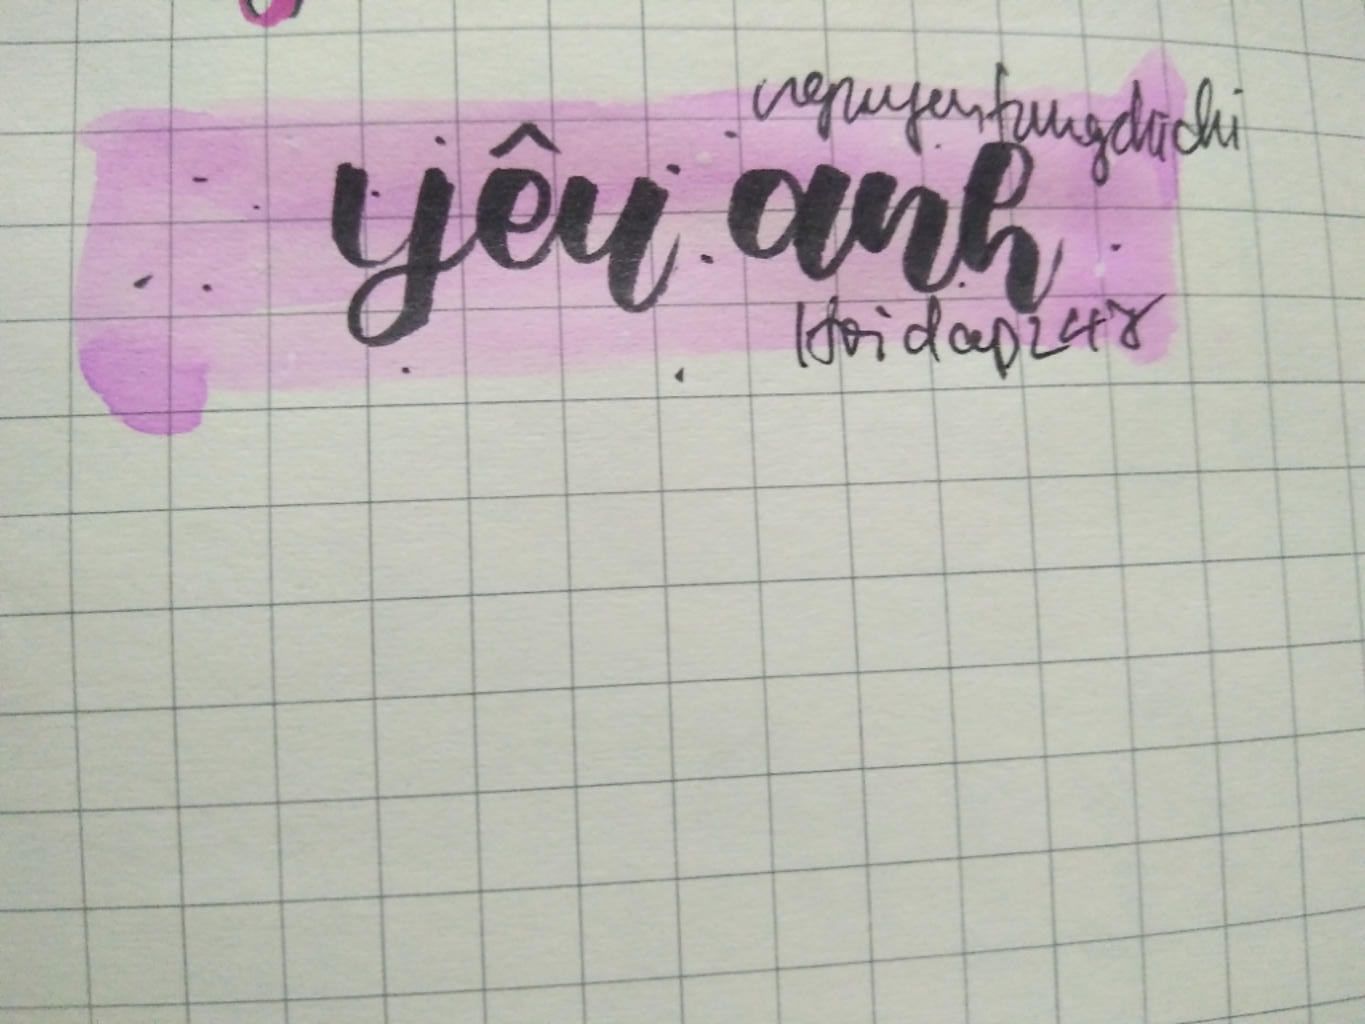 nguyentrungchichi
yêu anh
Hoidap247